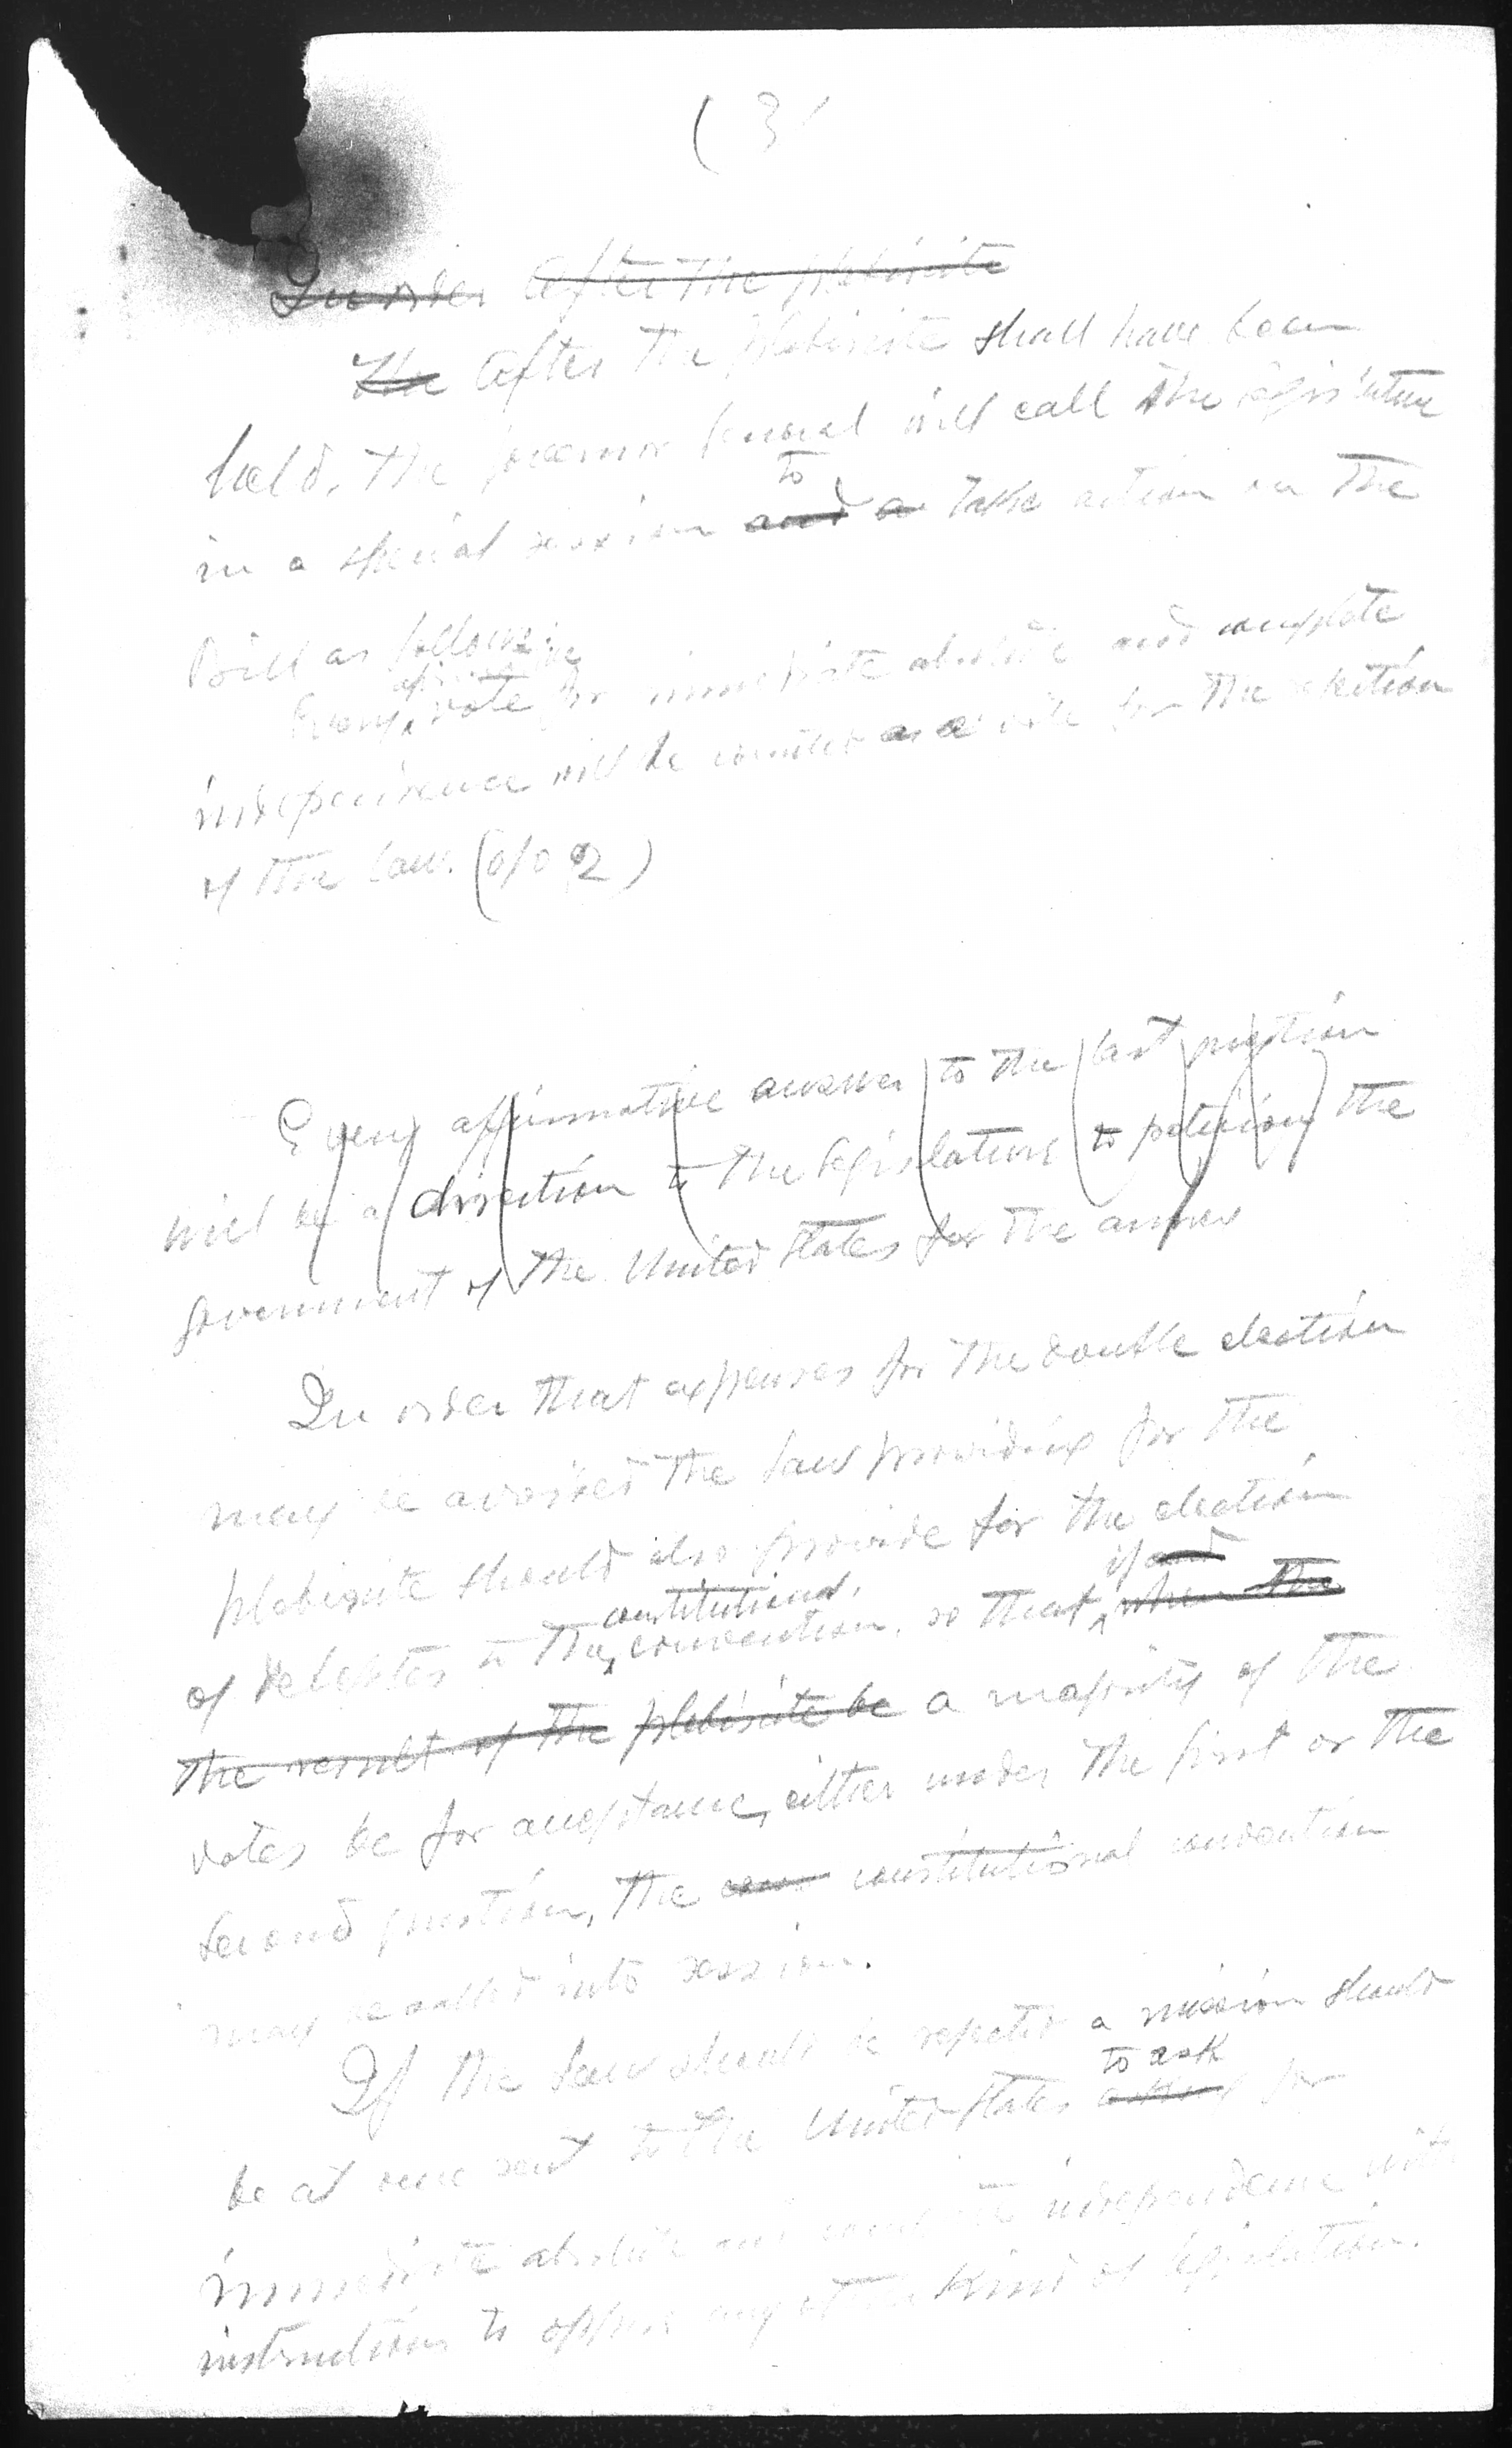 ( 3
In order after the plebiscite
The After the plebiscite shall have been
held, the governor general will call the legislature
to
in a special session and a take action on the
Bill as follows:
Every vote for immediate absolute and complete
independence will be counted as a vote for the
of the law. (
Every affirmative answer to the last question
will be a direction to the legislature to petition the
government of the United States for the
In order that expenses for the double election
may be avoided the law providing for the
plebiscite should also provide for the election
if and
constitutional
of delegates to the convention, so that when the
the result of the plebiscite be a majority of the
votes be for acceptance, either under the first or the
second question, the conv constitutional convention
may be called into session.
If the law should be rejected a mission should
to ask
be at once sent to the United States asking for
immediate absolute and complete independence with
instructions to oppose any other kind of legislation.